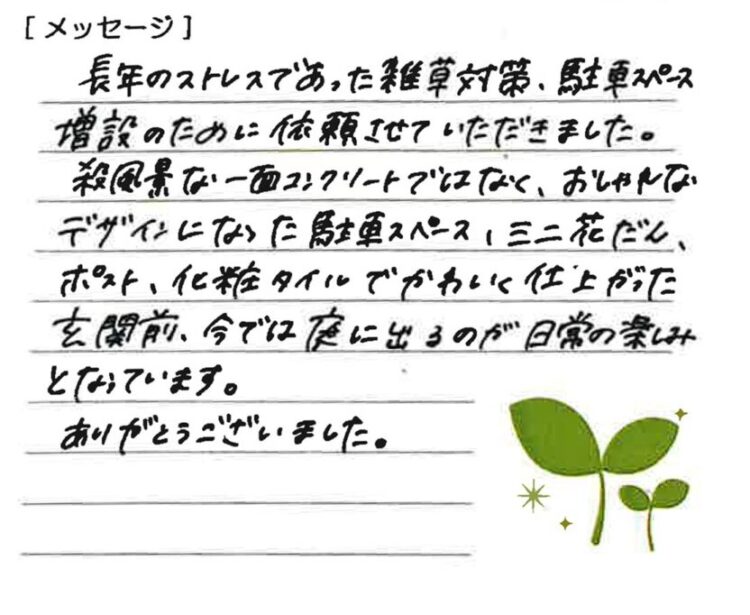 [メッセージ]
長年のストレスであった雑草対策、駐車スペース
増設のために依頼させていただきました。
殺風景な一面コンクリートではなく、おしゃれな
デザインになった駐車スペース、ミニ花だん、
ポスト、化粧タイルでかわいく仕上がった
玄関前、今では庭に出るのが日常の楽しみ
となっています。
ありがとうございました。